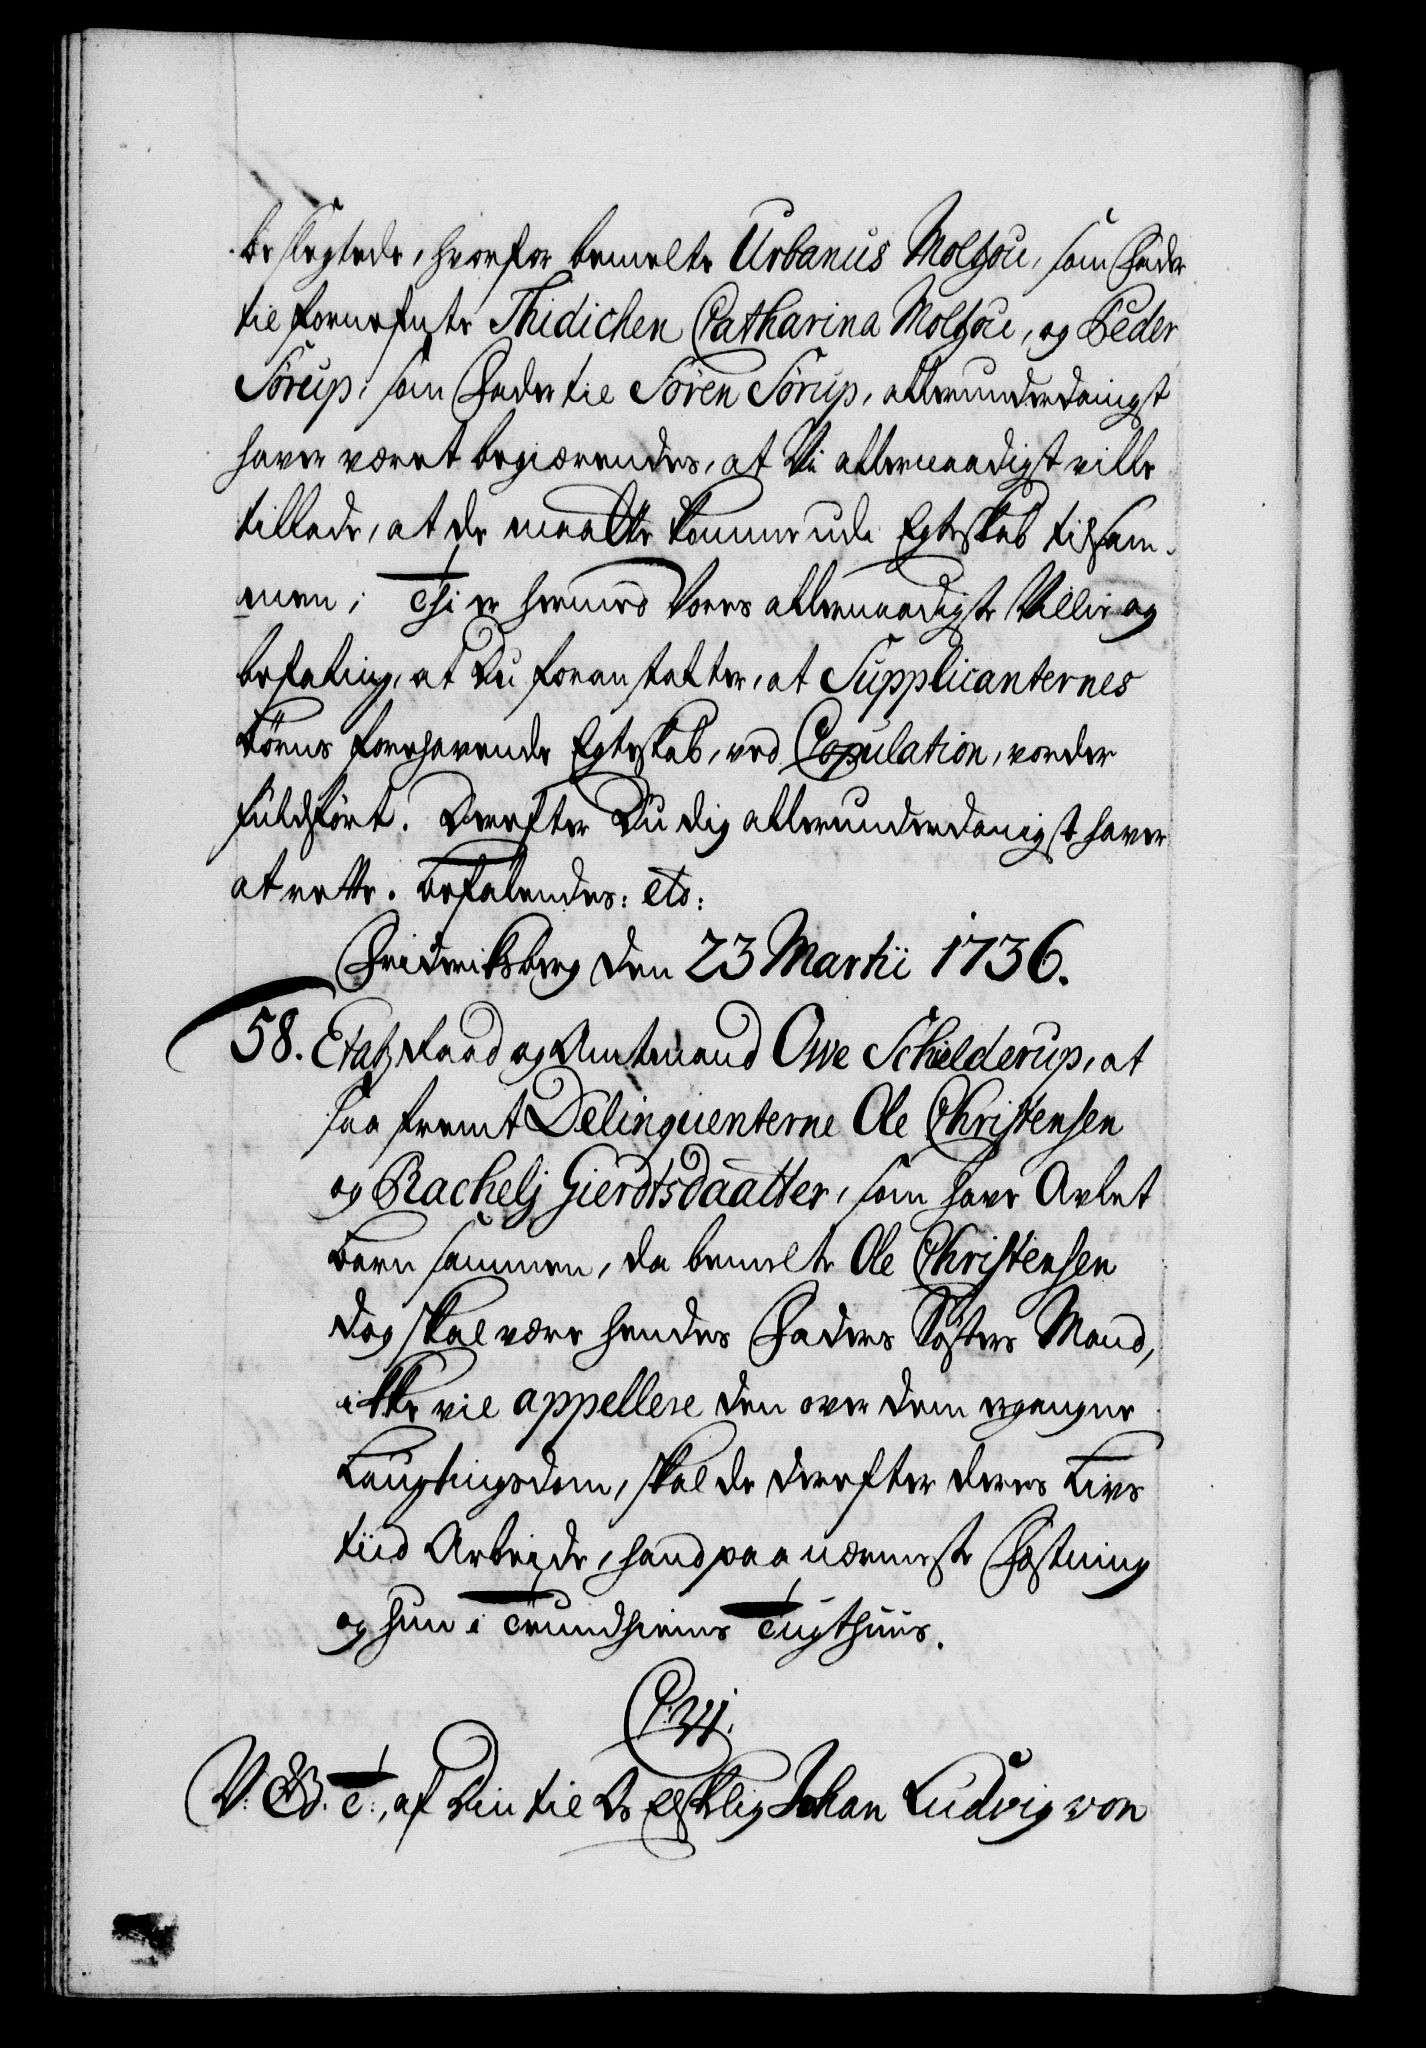 beslegtede, hvorfor bemelte Urbanus Moltzou, som Fader
til fornefnte Thidichen Catharina Moltzou, og Peder
Sörup, som Fader til Sören Sörup, allerunderdanigst
haver været begiærendes, at Vi allernaadigst ville
tillade, at de maatte komme udi Egteskab tilsam-
men; Thi er hermed Vores allernaadigste Villie og
befaling, at Du foranstalter, at Supplicanternes
Börns forehavende Egteskab, ved Copulation, vorder
fuldfört. Derefter Du dig allerunderdanigst haver
at rette. Befalendes: etc:
Friderichsberg den 23 Martii 1736.
58. Etatz Raad og Amtmand Owe Schielderup, at
saa fremt Delinquenterne Ole Christensen
og Rachelj Gierdtsdaatter, som have Avlet
Barn sammen, da bemelte Ole Christensen
dog skal være hendes Faders Sösters Mand,
ikke vil appellere den over dem ergangne
Laugtingsdom, skal de derefter deres Livs
tiid Arbeide, hand paa nærmeste Fæstning
og hun i Trundhiems Tugthuus.
C. VI.
V. G. T., af Din til Os Elskelig Johan Ludvig von